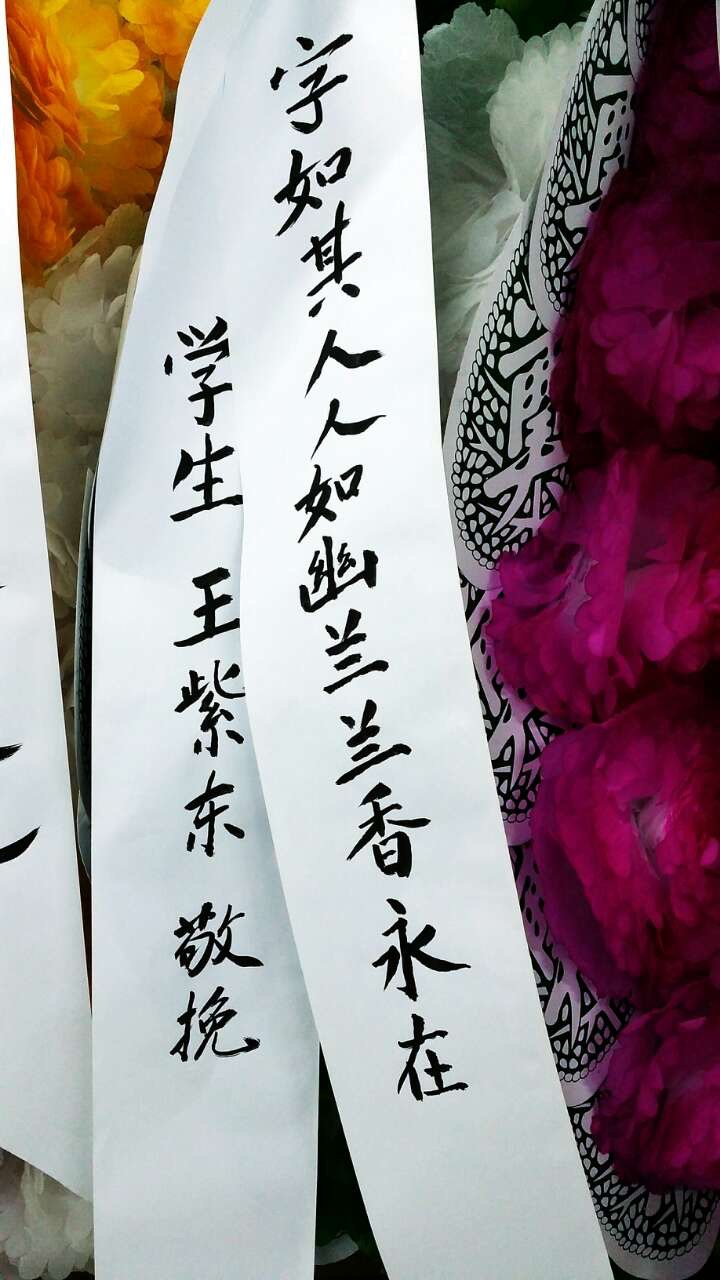 字如其人人如幽兰兰香永在
学生 王紫东 敬挽